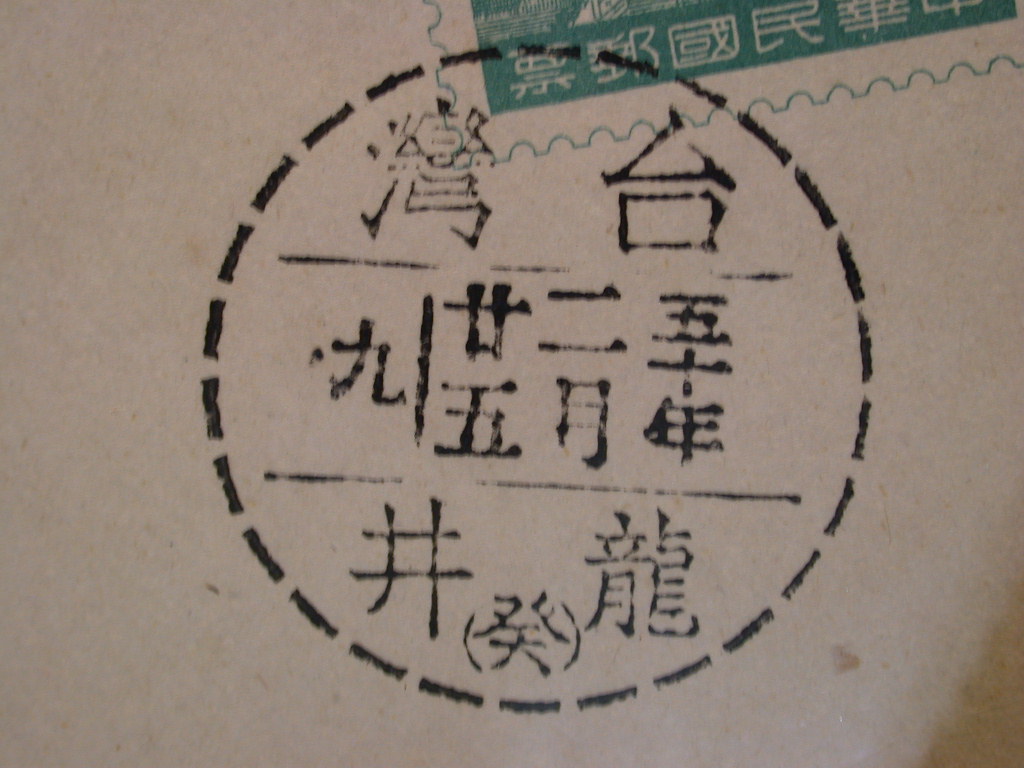 中華民國郵票
台灣
五十年二月廿五 九
龍井
(癸)